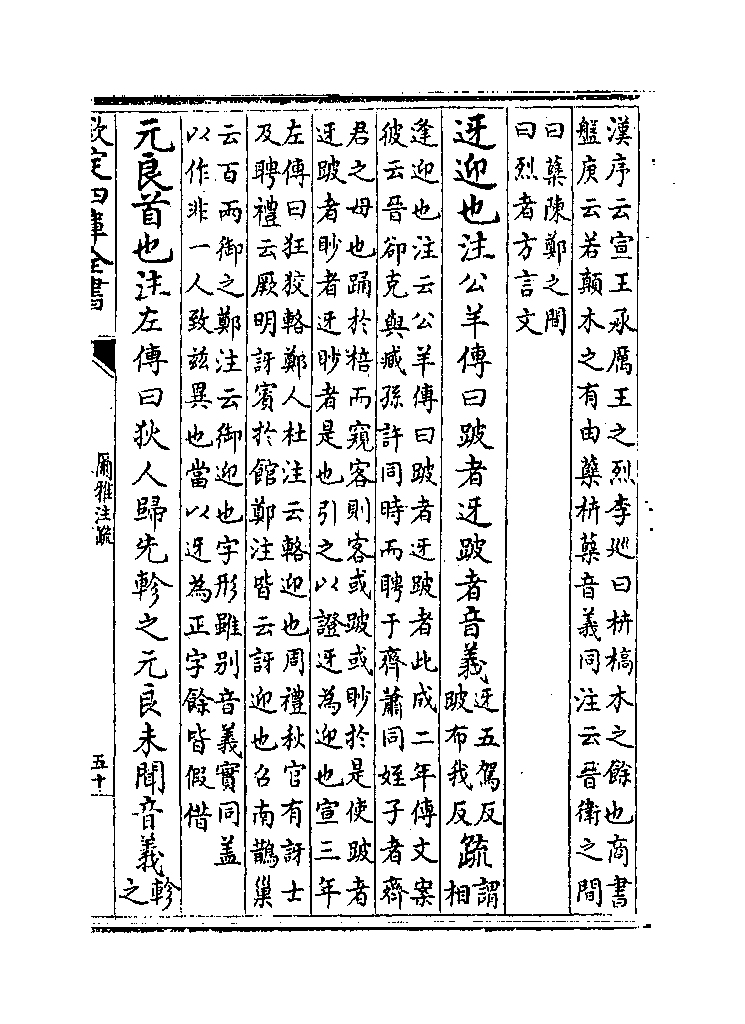 漢序云宣王承厲王之烈李廵曰枿槁木之餘也商書
盤庚云若顛木之有由蘖枿蘖音義同注云晉衛之間
曰蘖陳鄭之間
曰烈者方言文
迓迎也注公羊傳曰跛者迓跛者音義迓五駕反跛布我反疏謂相
逢迎也注云公羊傳曰跛者迓跛者此成二年傳文案
彼云晉卻克與臧孫許同時而聘于齊蕭同姪子者齊
君之母也踊於棓而窺客則客或跛或眇於是使跛者
迓跛者眇者迓眇者是也引之以證迓為迎也宣三年
左傳曰狂狡輅鄭人杜注云輅迎也周禮秋官有訝士
及聘禮云厥明訝賓於館鄭注皆云訝迎也召南鵲巢
云百兩御之鄭注云御迎也字形雖别音義實同盖
以作非一人致兹異也當以迓為正字餘皆假借
元良首也注左傳曰狄人歸先軫之元良未聞音義軫之
欽定四庫全書
爾雅注疏
五十